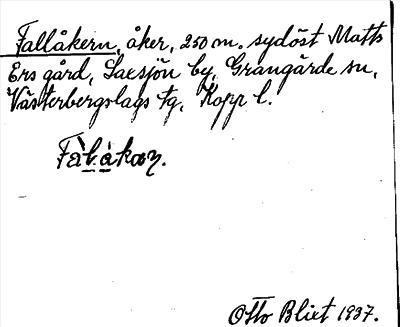 Fallåkern, åker, 250 m. sydöst Matts
Ers gård, Saxsjön by, Grangärde sn,
Västerbergslags tg, Kopp l.
Otto Blixt 1937.